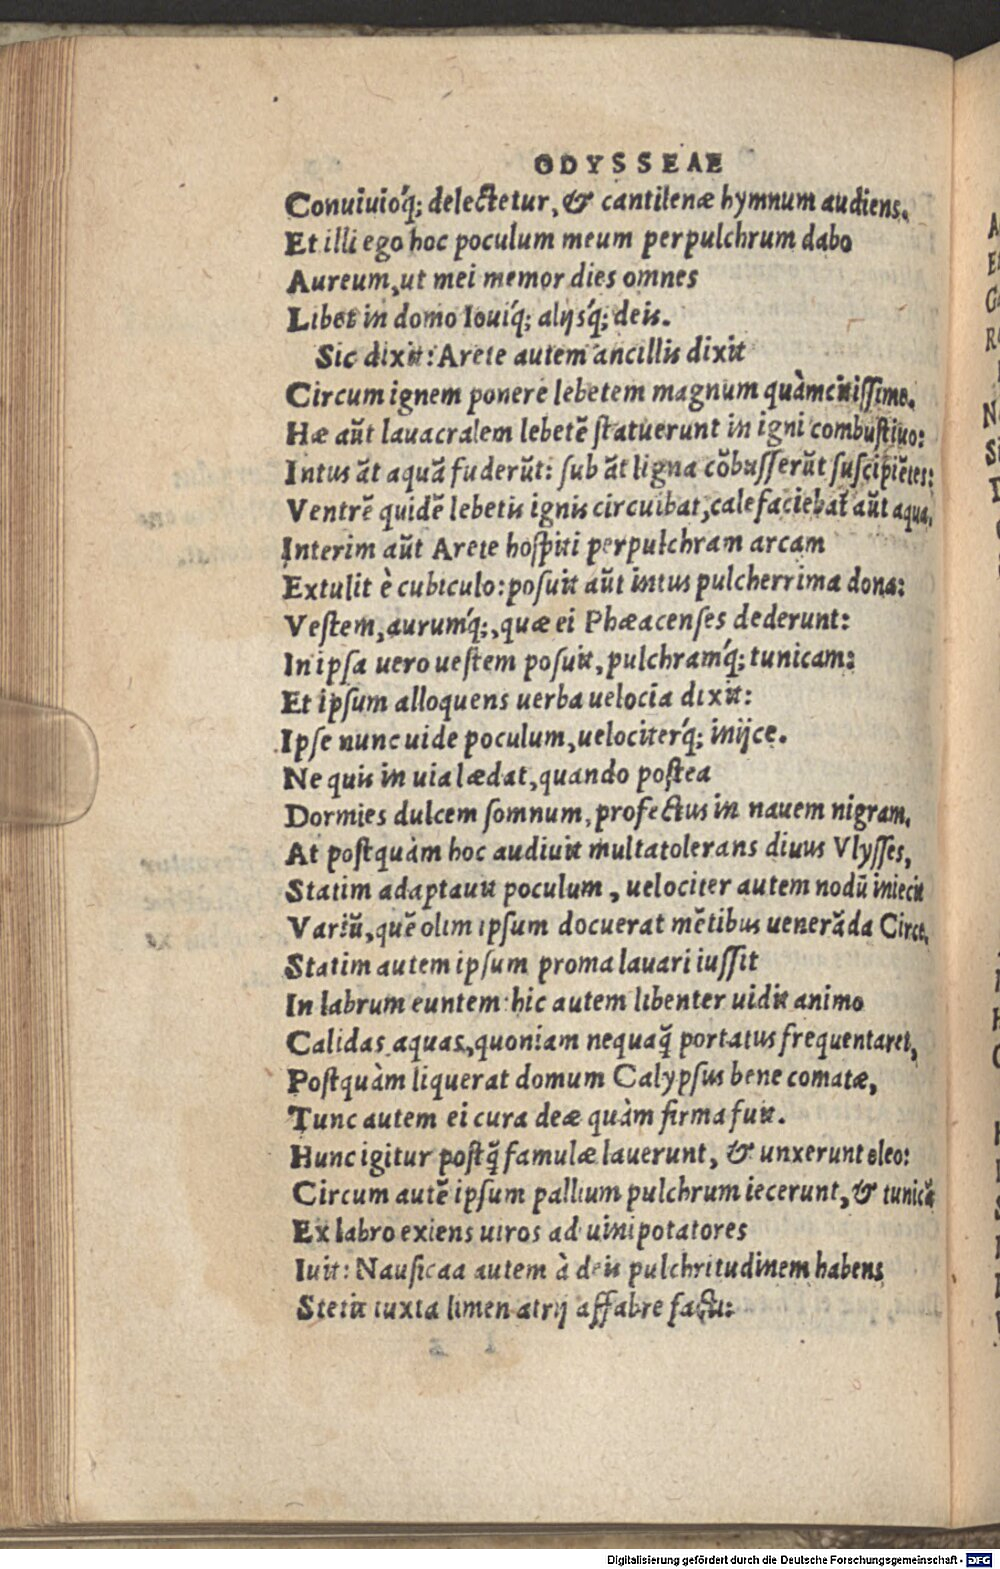 ODYSSEAE
Conuiuioq́; delectetur, & cantilenæ hymnum audiens.
Et illi ego hoc poculum meum perpulchrum dabo
Aureum, ut mei memor dies omnes
Libet in domo Ioui q́; alijsq́; deis.
Sic dixit: Arete autem ancillis dixit
Circum ignem ponere lebetem magnum quàm citissime.
Hæ aũt lauacralem lebetẽ statuerunt in igni combustiuo:
Intus ãt aquã fuderũt: sub ãt ligna cõbusserũt suscipiẽtes:
Ventrẽ quidẽ lebetis ignis circuibat, calefaciebat aũt aqua.
Interim aũt Arete hospiti perpulchram arcam
Extulit è cubiculo: posuit aũt intus pulcherrima dona:
Vestem, aurumq́;, quæ ei Phæacenses dederunt:
In ipsa uero uestem posuit, pulchramq́; tunicam:
Et ipsum alloquens uerba uelocia dixit:
Ipse nunc uide poculum, uelociterq́; inijce.
Ne quis in uia lædat, quando postea
Dormies dulcem somnum, profectus in nauem nigram.
At postquàm hoc audiuit multatolerans diuus Vlysses,
Statim adaptauit poculum, uelociter autem nodũ iniecit
Variũ, quẽ olim ipsum docuerat mẽtibus uenerãda Circe.
Statim autem ipsum proma lauari iussit
In labrum euntem: hic autem libenter uidit animo
Calidas aquas, quoniam nequaq̃ portatus frequentaret,
Postquàm liquerat domum Calypsus bene comatæ,
Tunc autem ei cura deæ quàm firma fuit.
Hunc igitur postq̃ famulæ lauerunt, & unxerunt oleo:
Circum autẽ ipsum pallium pulchrum iecerunt, & tunicã
Ex labro exiens uiros ad uini potatores
Iuit: Nausicaa autem à deis pulchritudinem habens
Stetit iuxta limen atrij affabre facti:
Digitalisierung gefördert durch die Deutsche Forschungsgemeinschaft - DFG